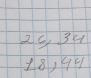 26, 34
18, 44